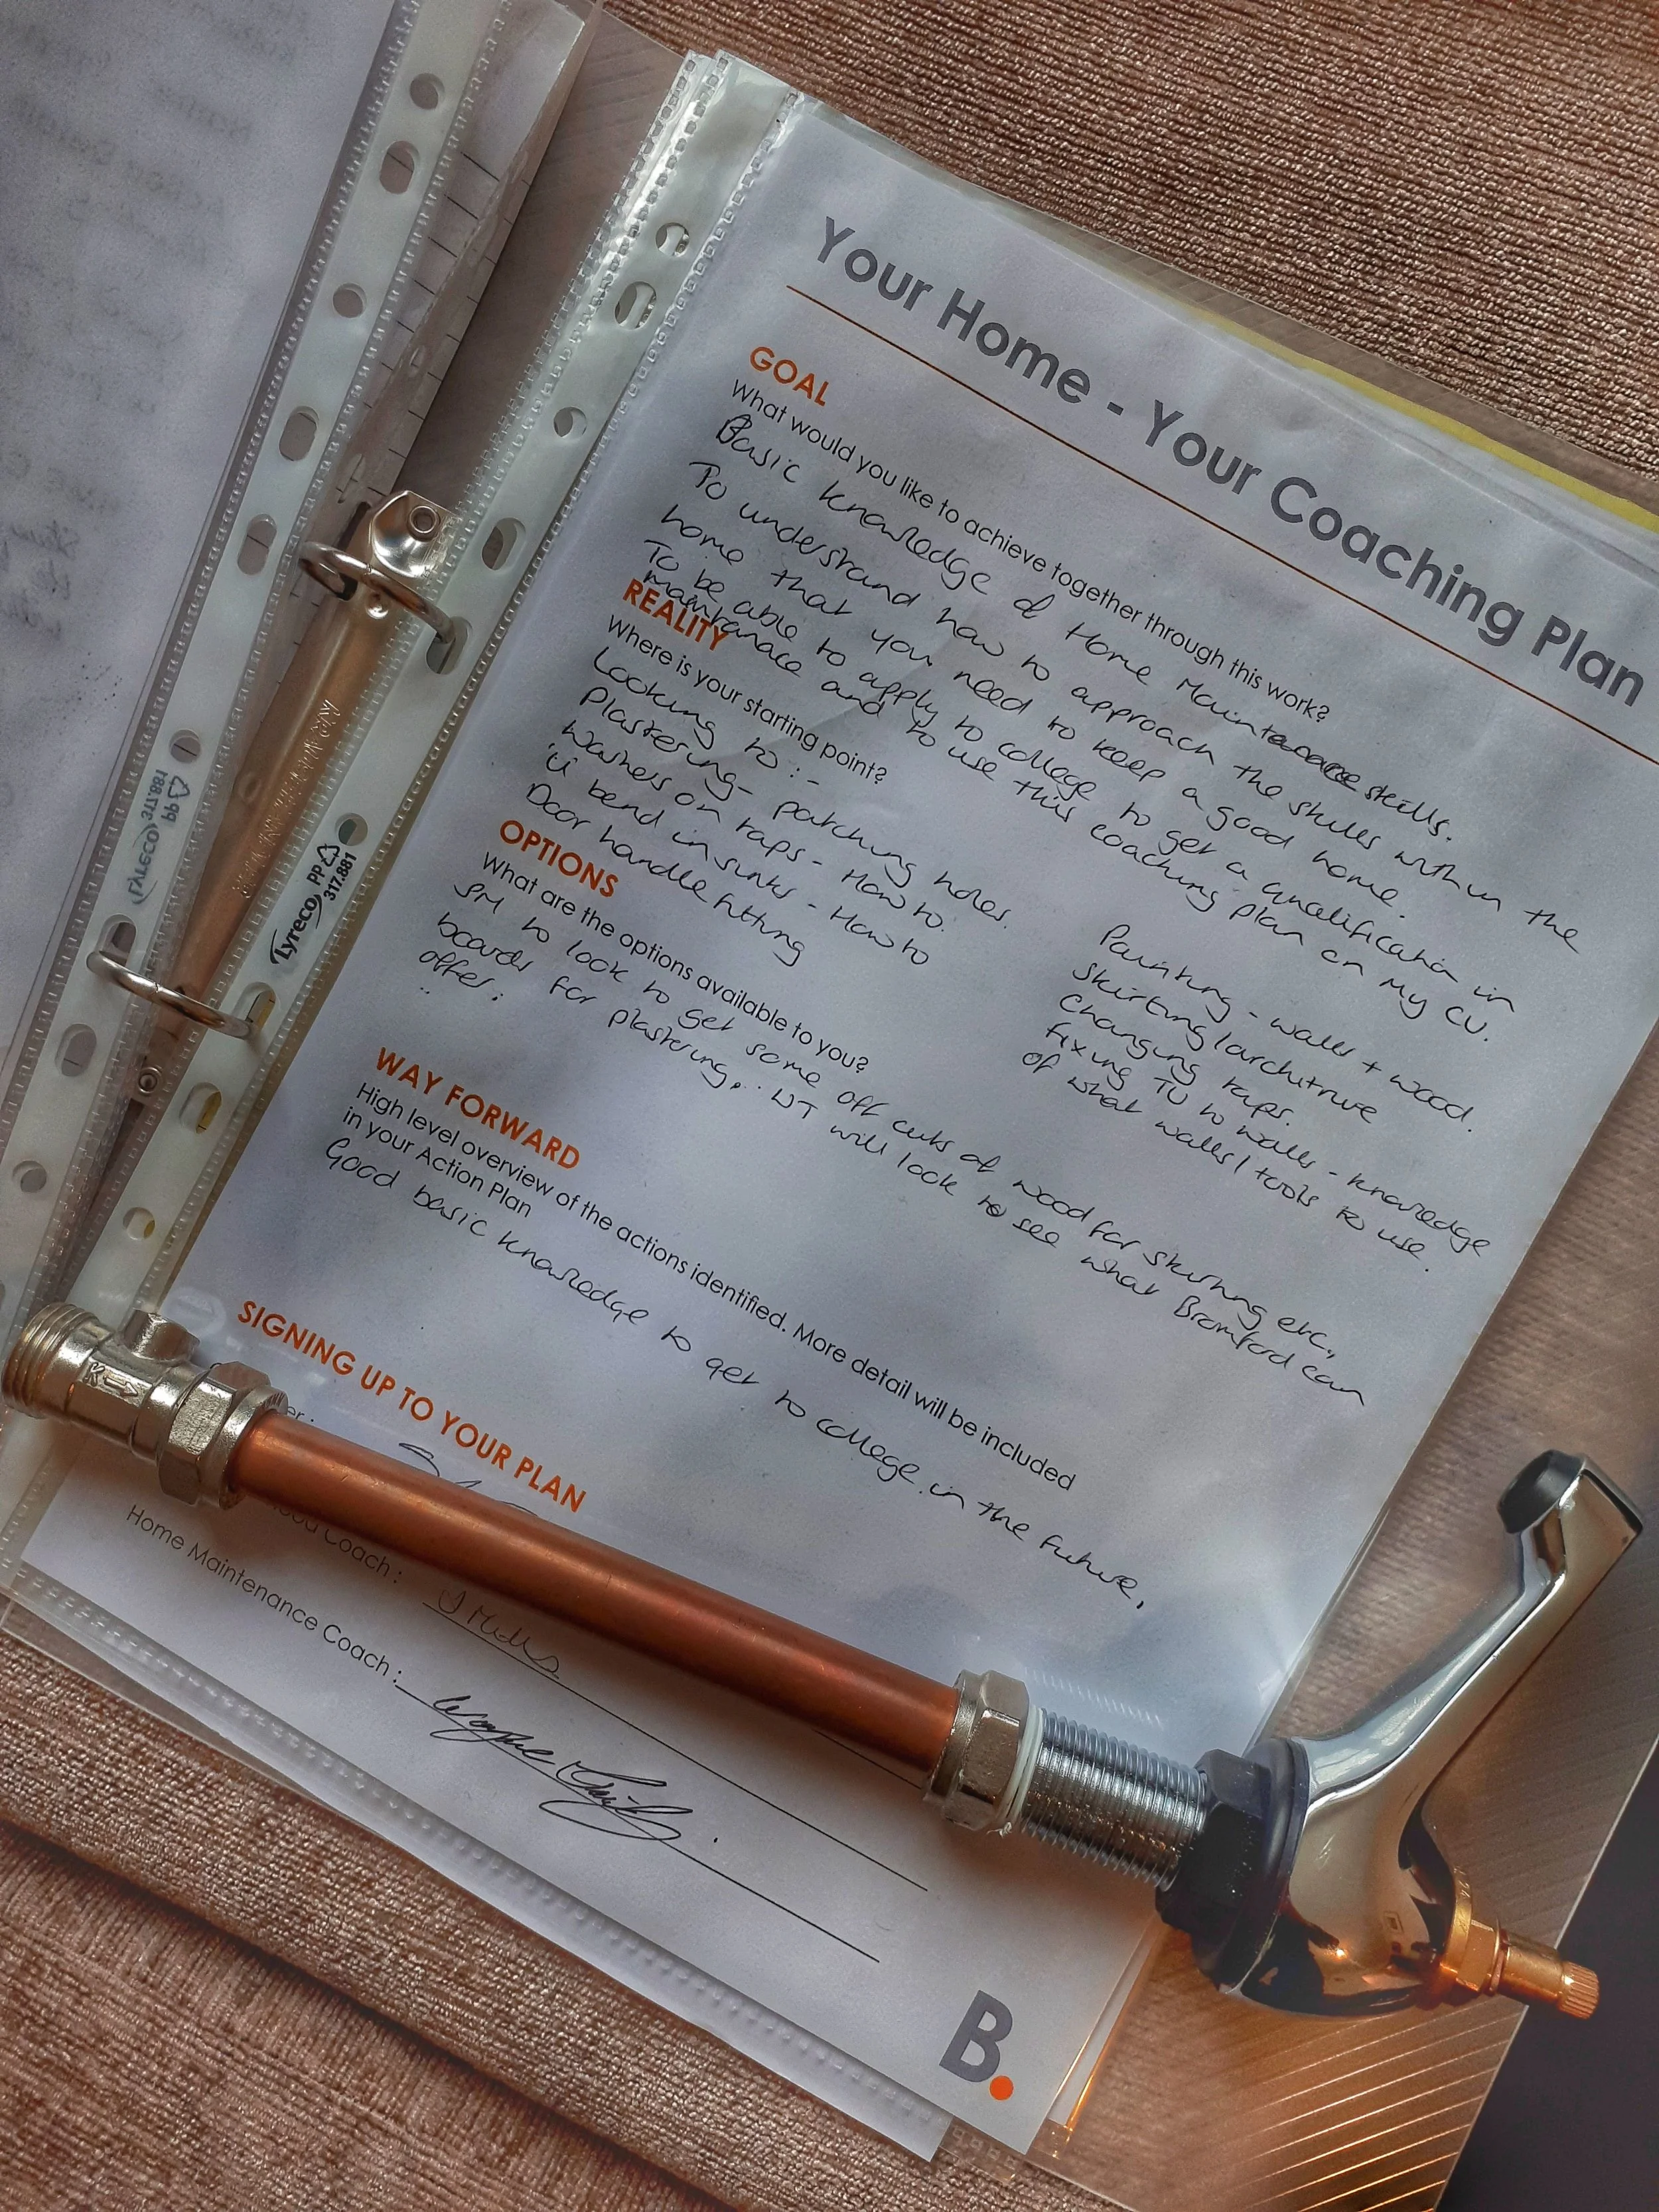 Your Home - Your Coaching Plan
GOAL
What would you like to achieve together through this work?
Basic knowledge of Home Maintenance skills.
To understand how to approach the skills within the
home that you need to keep a good home.
To be able to apply to college to get a qualification in
maintenance and to use this coaching plan on my CV.
REALITY
Where is your starting point?
Looking to :-
Plastering - patching holes.
Washers on taps - How to.
'U' bend in sinks - How to
Door handle fitting
Painting - walls + wood.
Skirting / architrave
Changing taps.
fixing TV to walls - knowledge
of what walls / tools to use.
OPTIONS
What are the options available to you?
SM to look to get some off cuts of wood for skirting etc.,
boards for plastering, WT will look to see what Bromford can
offer.
WAY FORWARD
High level overview of the actions identified. More detail will be included
in your Action Plan
Good basic knowledge to get to college in the future.
SIGNING UP TO YOUR PLAN
Coach :
Home Maintenance Coach :
Wayne
B.
Lyreco PP
317.881
Lyreco PP
317.881